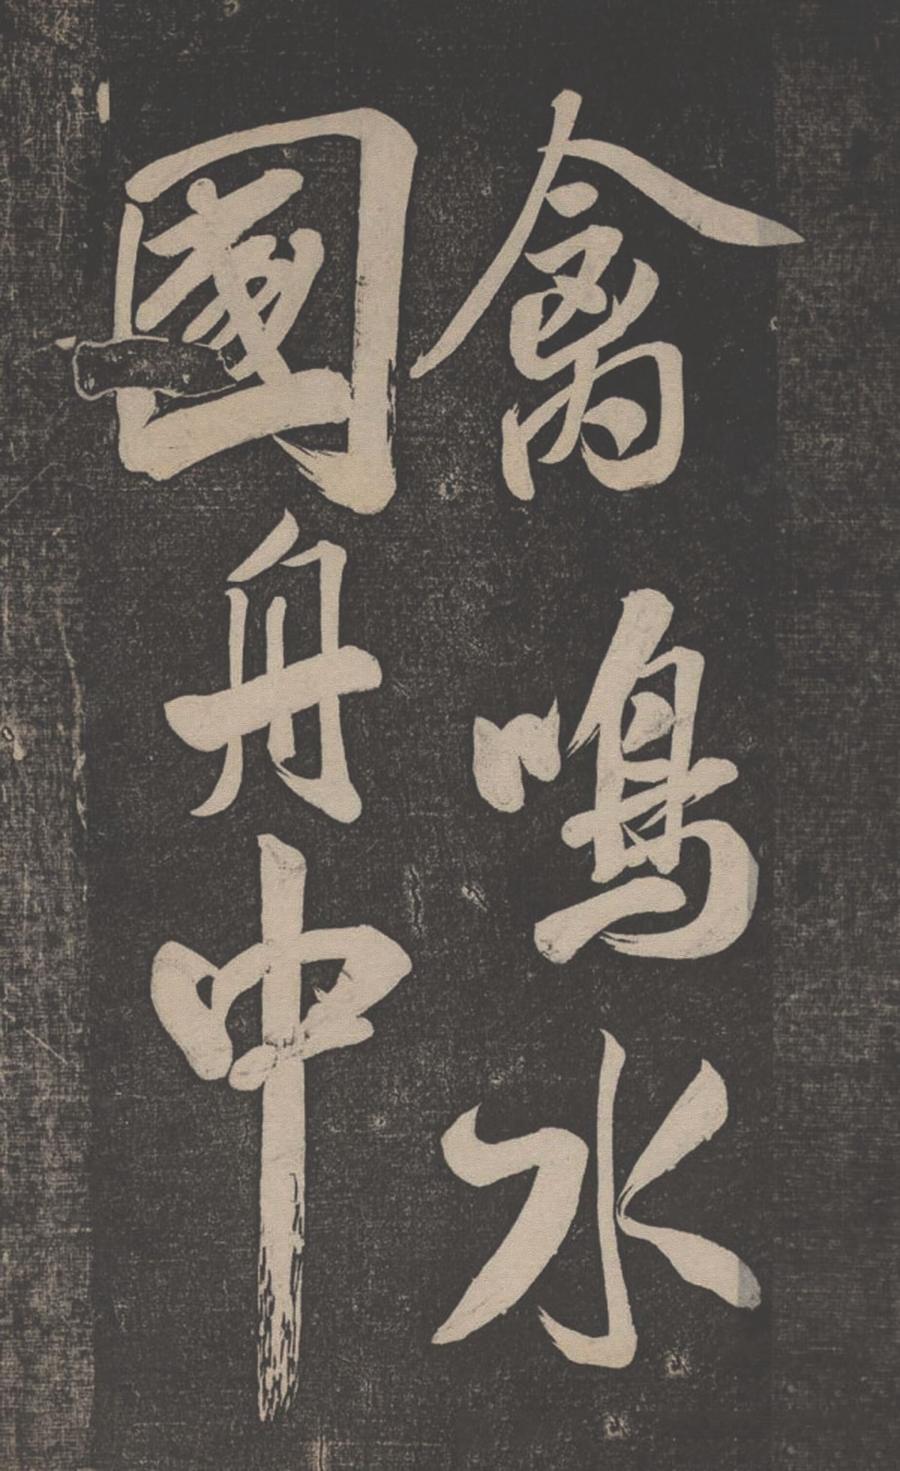 禽鳴水
國舟中